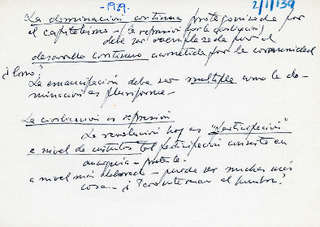 -1979.
2/1/139
La dominación continua protagonizada por
el capitalismo - (la represión por la
debe ser reemplazada por el
desarrollo continuo acometida por la comunidad
La emancipación debe ser multiple como la do-
minación es pluriforme -
La civilización es represión
La revolución hoy es "participación"
a nivel de institutos tal participación consiste en
anarquía - protesta -
a nivel más elaborado - puede ser muchas más
cosa - ¿